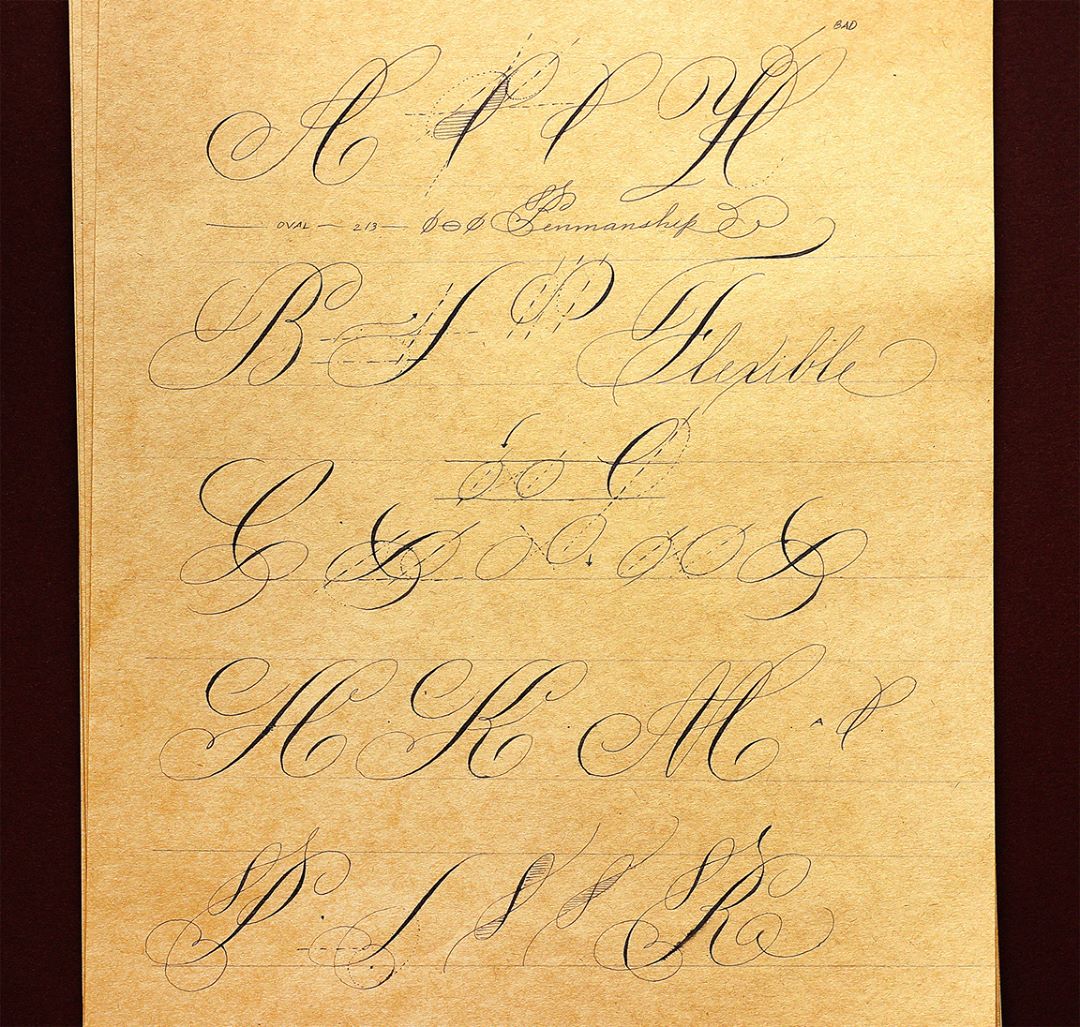 BAD
A H
OVAL — 2/3 — Penmanship
B Flexible
C
H K M A
P R